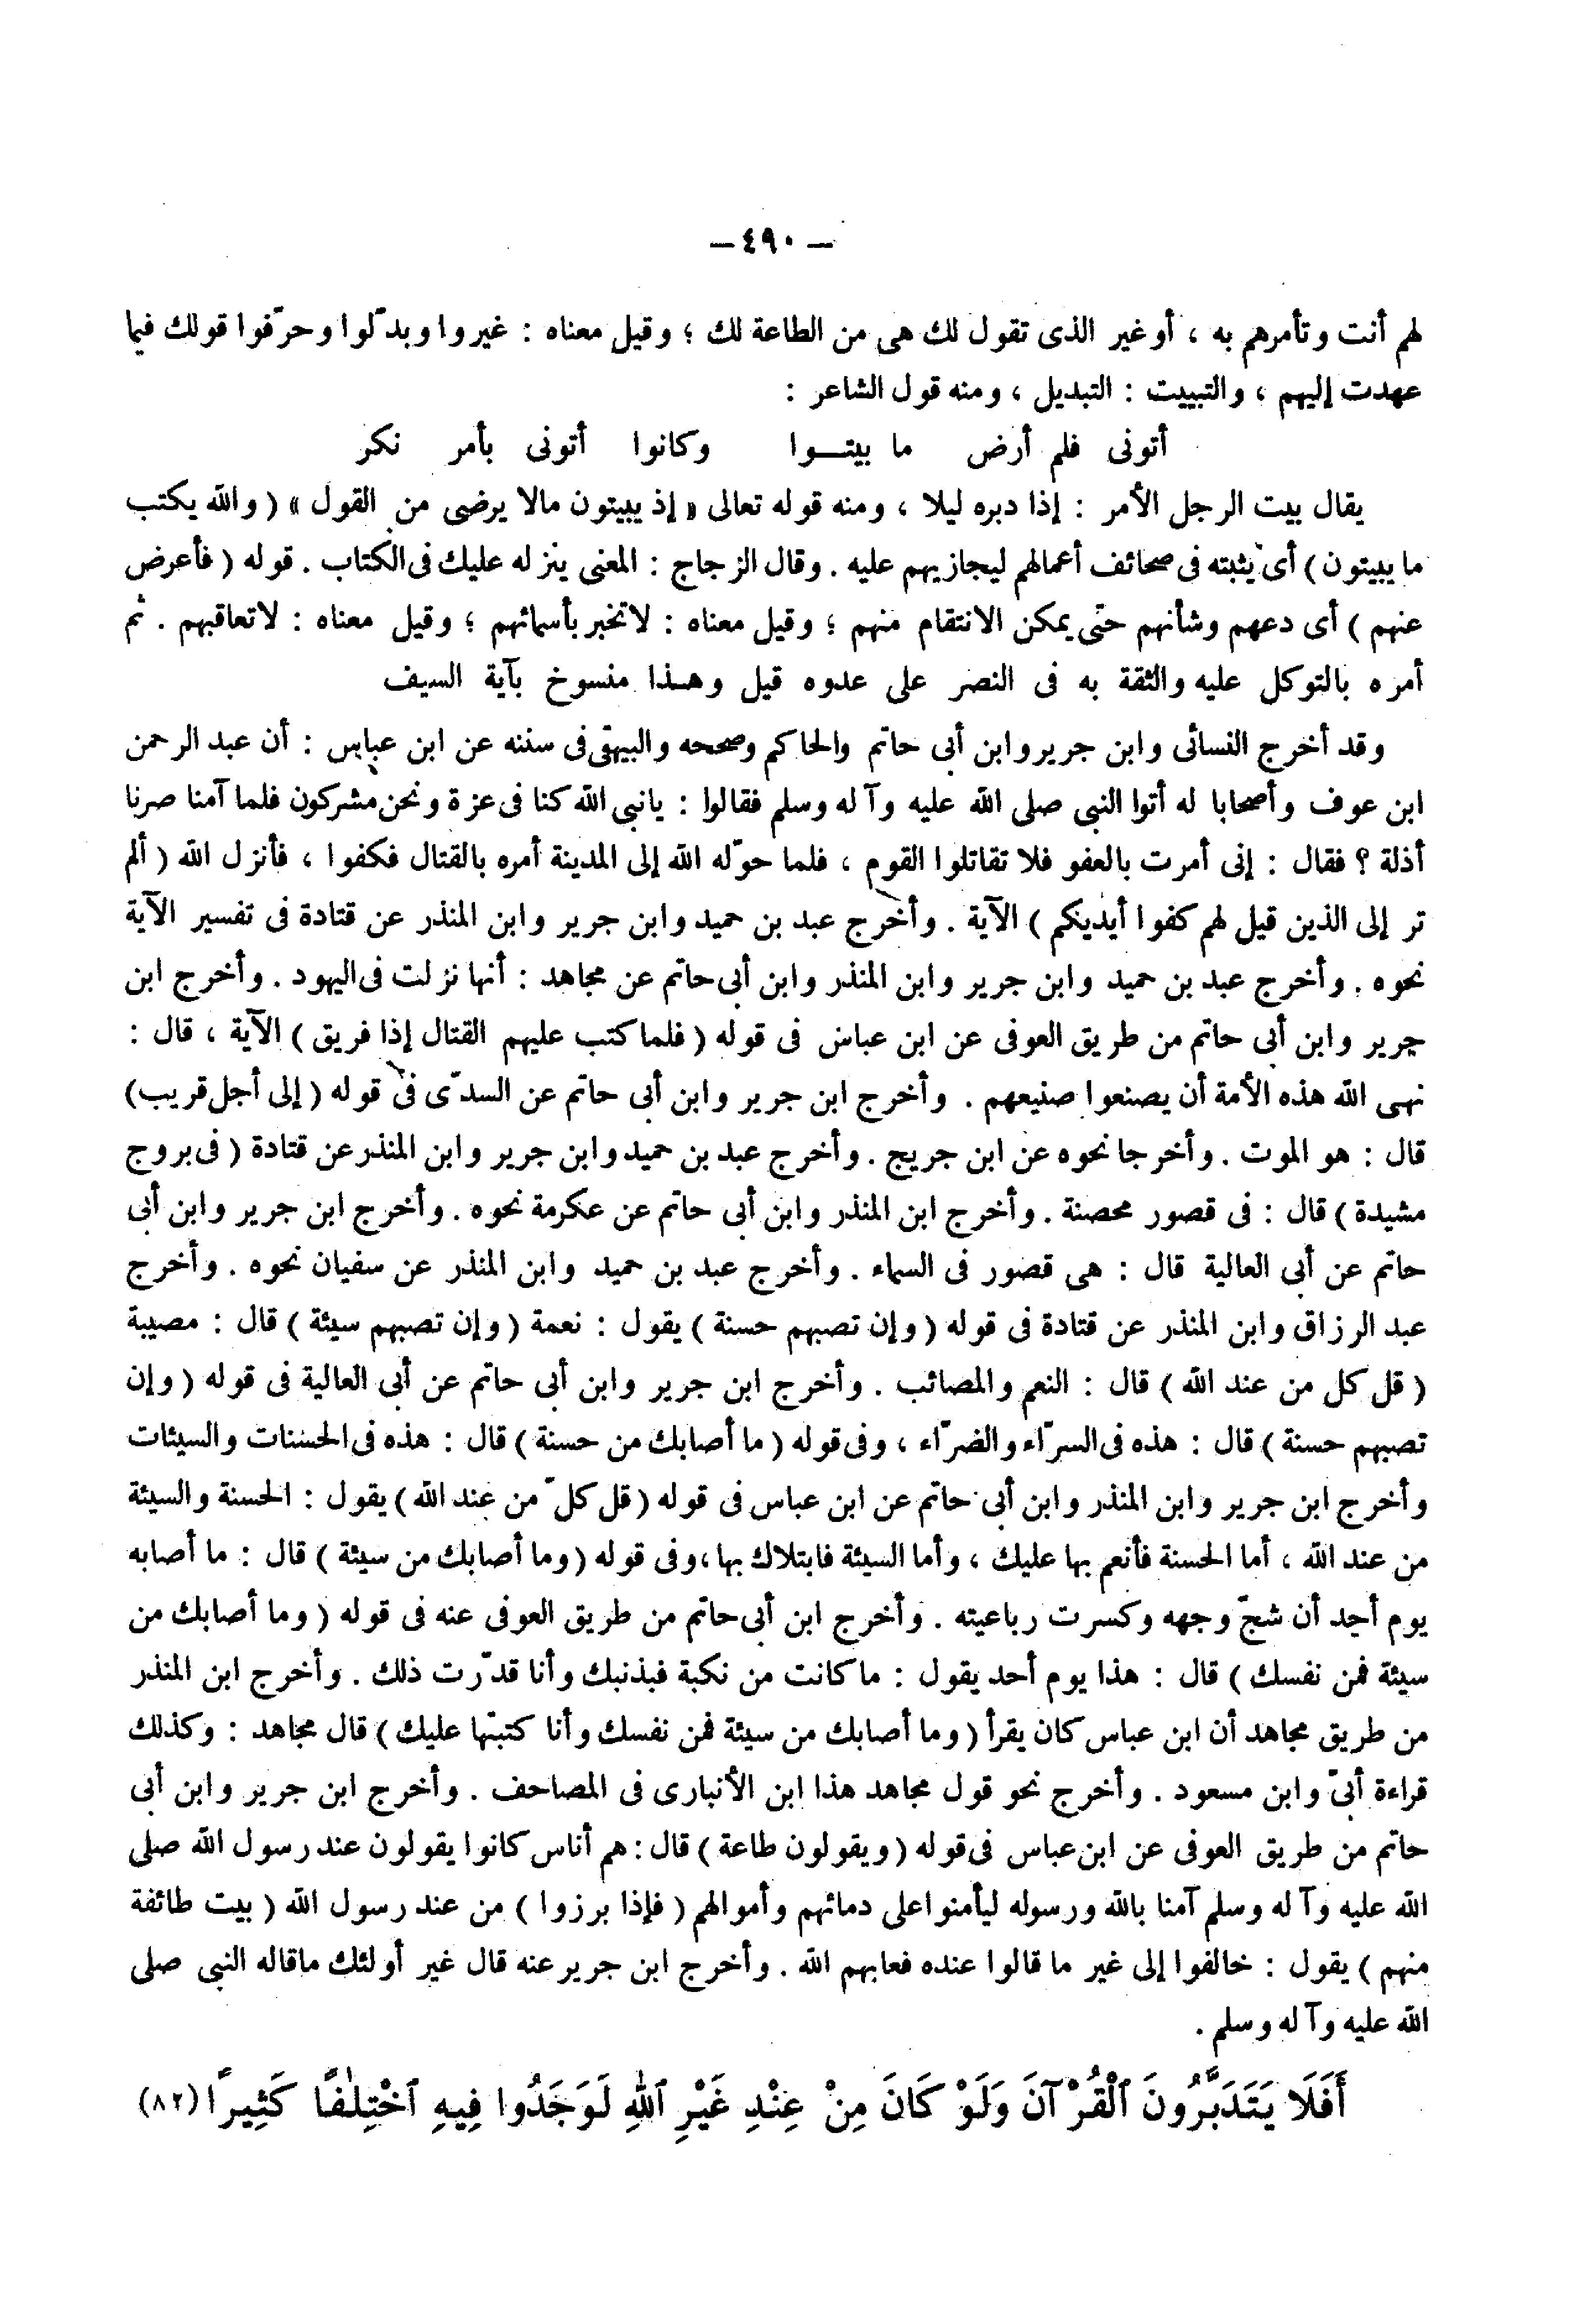 — ٤٩٠ —
لهم أنت وتأمرهم به ، أو غير الذى تقول لك هى من الطاعة لك ؛ وقيل معناه : غيروا وبدّلوا وحرّفوا قولك فيما
عهدت إليهم ، والتبييت : التبديل ، ومنه قول الشاعر :
أتونى فلم أرض ما بيتــوا وكانوا أتونى بأمر نكر
يقال بيت الرجل الأمر : إذا دبره ليلا ، ومنه قوله تعالى « إذ يبيتون مالا يرضى من القول » ( والله يكتب
ما يبيتون ) أى يثبته فى صحائف أعمالهم ليجازيهم عليه . وقال الزجاج : المعنى ينزله عليك فى الكتاب . قوله ( فأعرض
عنهم ) أى دعهم وشأنهم حتى يمكن الانتقام منهم ؛ وقيل معناه : لاتخبر بأسمائهم ؛ وقيل معناه : لاتعاقبهم . ثم
أمره بالتوكل عليه والثقة به فى النصر على عدوه قيل وهذا منسوخ بآية السيف
وقد أخرج النسائى وابن جرير وابن أبى حاتم والحاكم وصححه والبيهقى فى سننه عن ابن عباس : أن عبد الرحمن
ابن عوف وأصحابا له أتوا النبى صلى الله عليه وآله وسلم فقالوا : يانبى الله كنا فى عزة ونحن مشركون فلما آمنا صرنا
أذلة ؟ فقال : إنى أمرت بالعفو فلا تقاتلوا القوم ، فلما حوّله الله إلى المدينة أمره بالقتال فكفوا ، فأنزل الله ( ألم
تر إلى الذين قيل لهم كفوا أيديكم ) الآية . وأخرج عبد بن حميد وابن جرير وابن المنذر عن قتادة فى تفسير الآية
نحوه . وأخرج عبد بن حميد وابن جرير وابن المنذر وابن أبى حاتم عن مجاهد : أنها نزلت فى اليهود . وأخرج ابن
جرير وابن أبى حاتم من طريق العوفى عن ابن عباس فى قوله ( فلما كتب عليهم القتال إذا فريق ) الآية ، قال :
نهى الله هذه الأمة أن يصنعوا صنيعهم . وأخرج ابن جرير وابن أبى حاتم عن السدّى فى قوله ( إلى أجل قريب )
قال : هو الموت . وأخرجا نحوه عن ابن جريج . وأخرج عبد بن حميد وابن جرير وابن المنذر عن قتادة ( فى بروج
مشيدة ) قال : فى قصور محصنة . وأخرج ابن المنذر وابن أبى حاتم عن عكرمة نحوه . وأخرج ابن جرير وابن أبى
حاتم عن أبى العالية قال : هى قصور فى السماء . وأخرج عبد بن حميد وابن المنذر عن سفيان نحوه . وأخرج
عبد الرزاق وابن المنذر عن قتادة فى قوله ( وإن تصبهم حسنة ) يقول : نعمة ( وإن تصبهم سيئة ) قال : مصيبة
( قل كل من عند الله ) قال : النعم والمصائب . وأخرج ابن جرير وابن أبى حاتم عن أبى العالية فى قوله ( وإن
تصبهم حسنة ) قال : هذه فى السرّاء والضرّاء ، وفى قوله ( ما أصابك من حسنة ) قال : هذه فى الحسنات والسيئات
وأخرج ابن جرير وابن المنذر وابن أبى حاتم عن ابن عباس فى قوله ( قل كلّ من عند الله ) يقول : الحسنة والسيئة
من عند الله ، أما الحسنة فأنعم بها عليك ، وأما السيئة فابتلاك بها ، وفى قوله ( وما أصابك من سيئة ) قال : ما أصابه
يوم أحد أن شجّ وجهه وكسرت رباعيته . وأخرج ابن أبى حاتم من طريق العوفى عنه فى قوله ( وما أصابك من
سيئة فمن نفسك ) قال : هذا يوم أحد يقول : ما كانت من نكبة فبذنبك وأنا قدّرت ذلك . وأخرج ابن المنذر
من طريق مجاهد أن ابن عباس كان يقرأ ( وما أصابك من سيئة فمن نفسك وأنا كتبتها عليك ) قال مجاهد : وكذلك
قراءة أبىّ وابن مسعود . وأخرج نحو قول مجاهد هذا ابن الأنبارى فى المصاحف . وأخرج ابن جرير وابن أبى
حاتم من طريق العوفى عن ابن عباس فى قوله ( ويقولون طاعة ) قال : هم أناس كانوا يقولون عند رسول الله صلى
الله عليه وآله وسلم آمنا بالله ورسوله ليأمنوا على دمائهم وأموالهم ( فإذا برزوا ) من عند رسول الله ( بيت طائفة
منهم ) يقول : خالفوا إلى غير ما قالوا عنده فعابهم الله . وأخرج ابن جرير عنه قال غير أولئك ماقاله النبى صلى
الله عليه وآله وسلم .
أَفَلَا يَتَدَبَّرُونَ ٱلْقُرْآنَ وَلَوْ كَانَ مِنْ عِنْدِ غَيْرِ ٱللهِ لَوَجَدُوا فِيهِ ٱخْتِلٰفًا كَثِيرًا (٨٢)